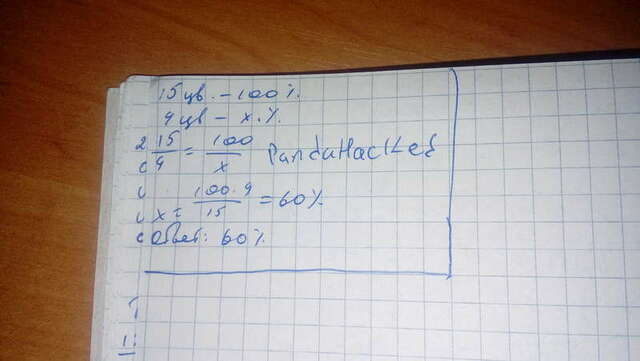 15 цв. - 100%
9 цв - x.%
15/9 = 100/x PandaHacker
x = 100·9/15 = 60%
Ответ: 60%